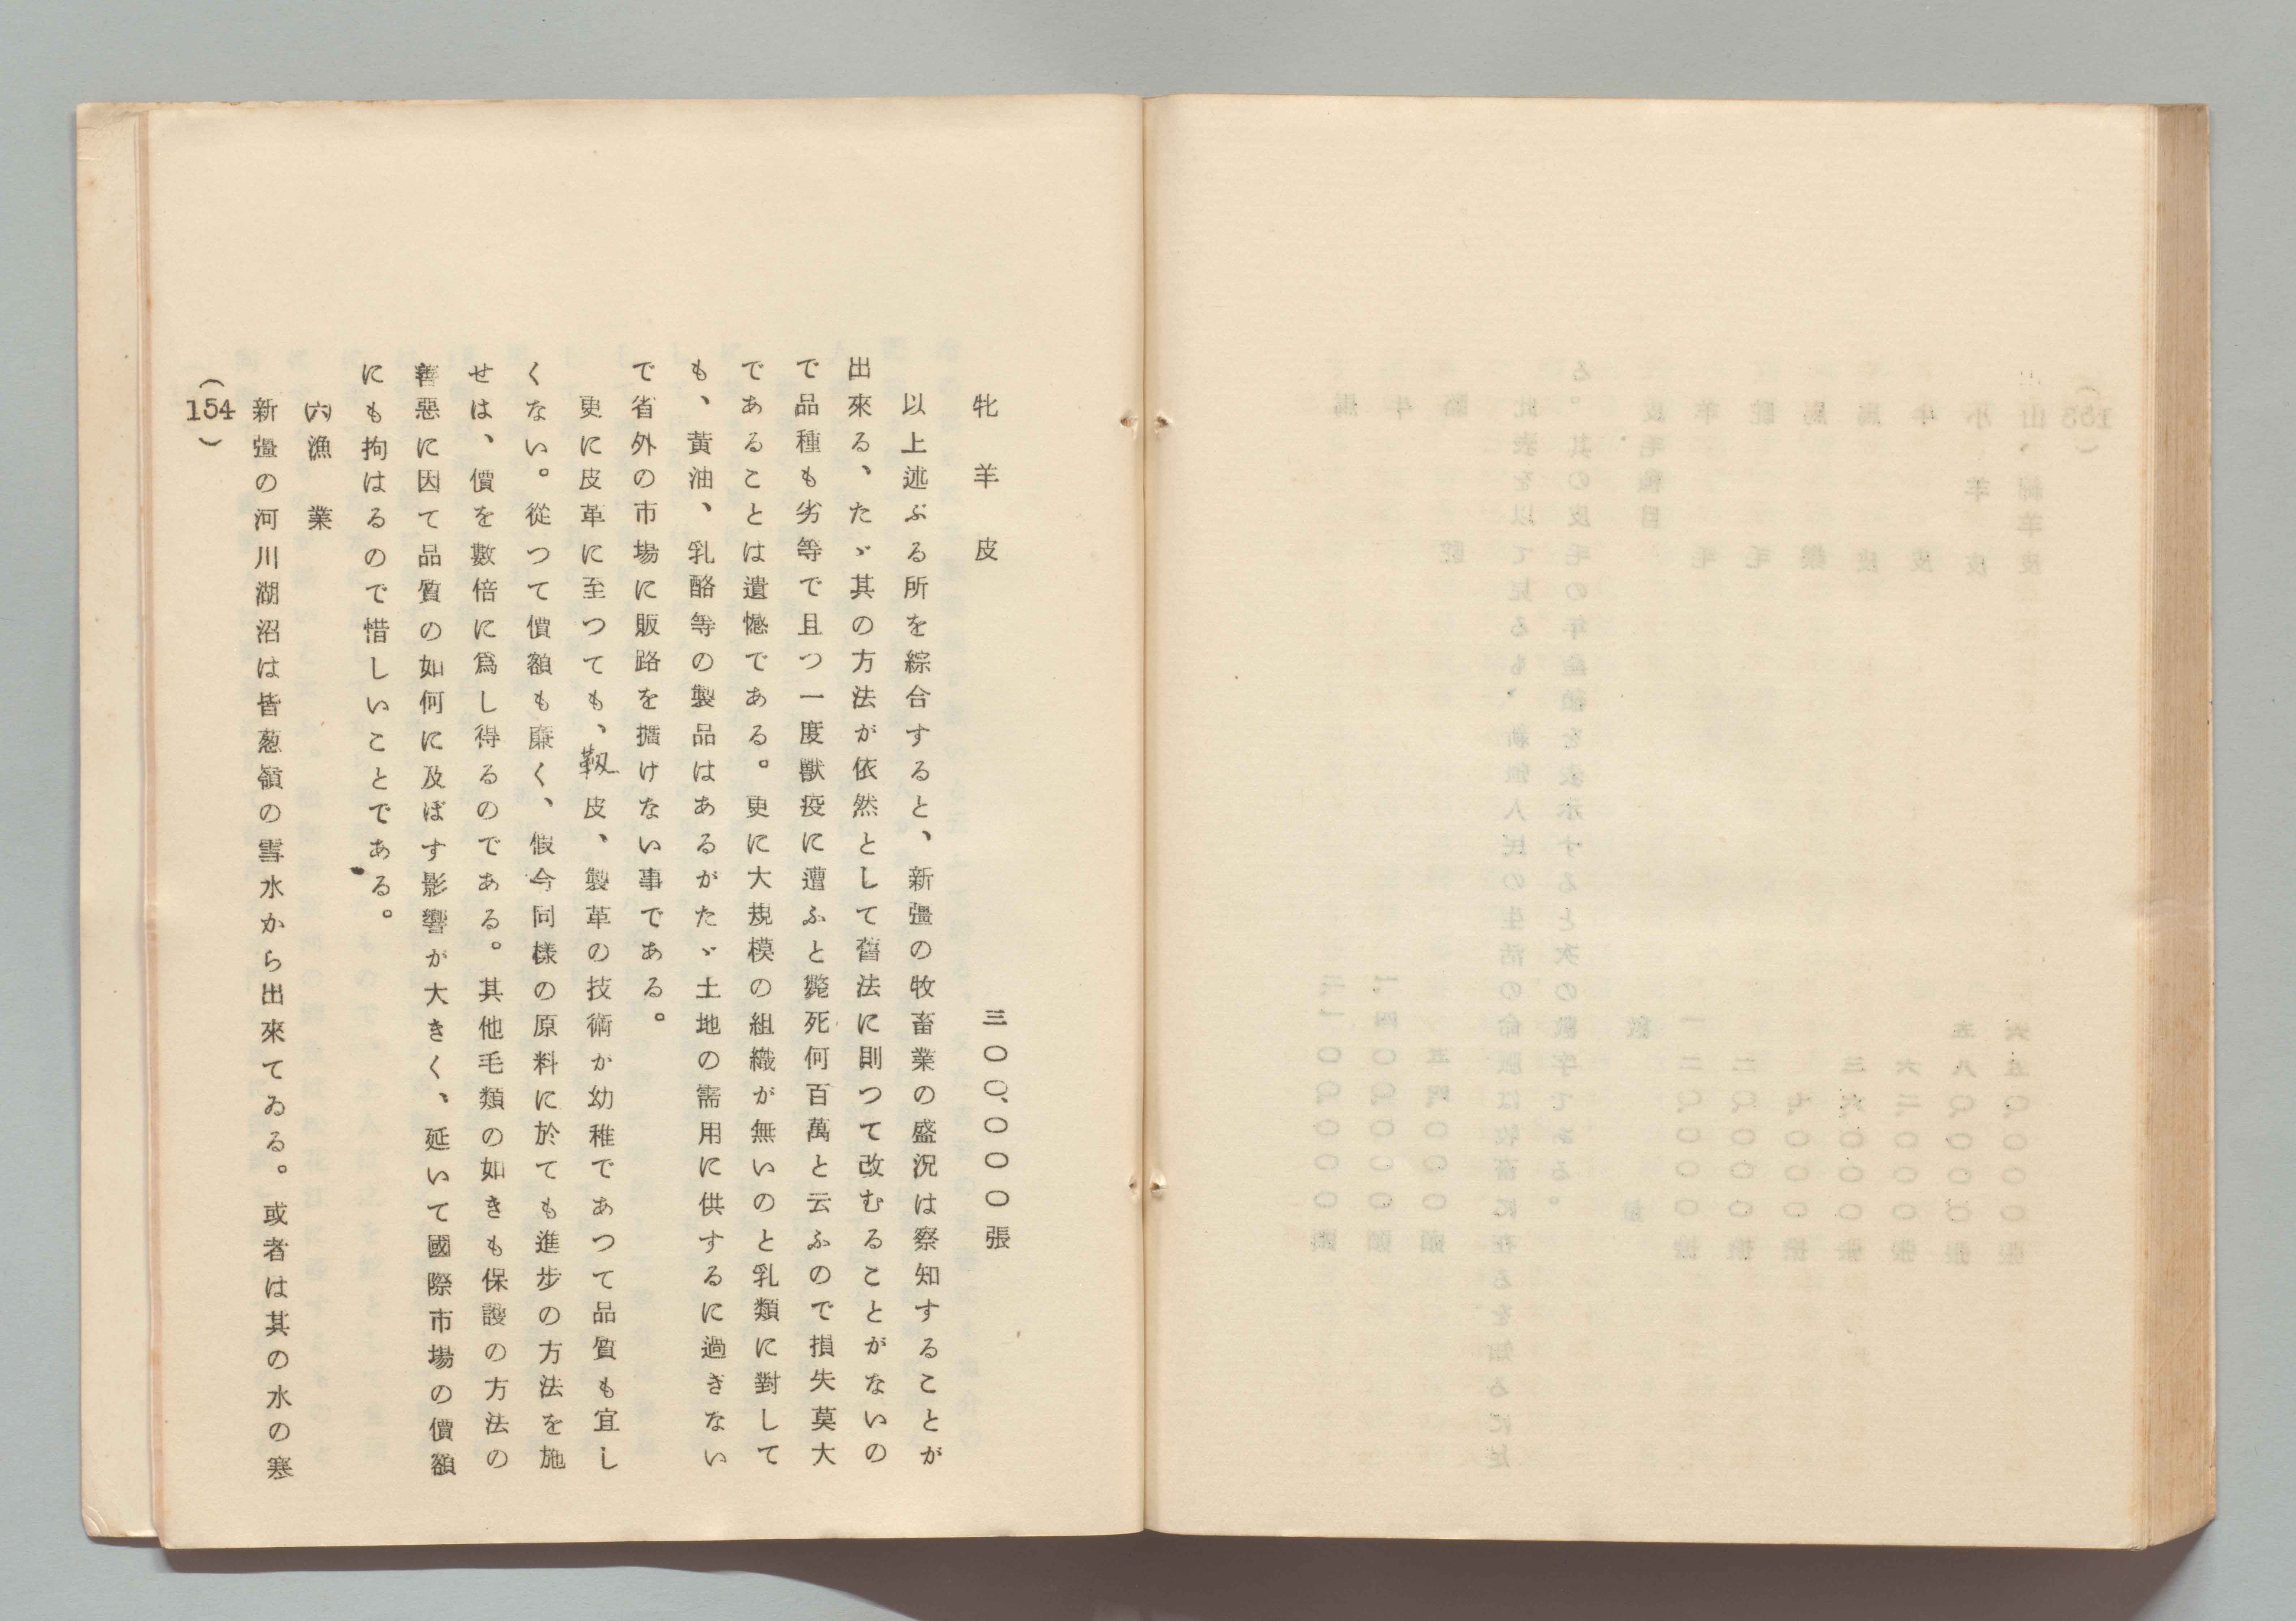 牝羊皮 三〇〇、〇〇〇張
以上述ぶる所を綜合すると、新疆の牧畜業の盛況は察知することが
出來る、たゞ其の方法が依然として舊法に則つて改むることがないの
で品種も劣等で且つ一度獸疫に遭ふと斃死何百萬と云ふので損失莫大
であることは遺憾である。更に大規模の組織が無いのと乳類に對して
も、黃油、乳酪等の製品はあるがたゞ土地の需用に供するに過ぎない
で省外の市場に販路を擴けない事である。
更に皮革に至つても、靱皮、製革の技術か幼稚であつて品質も宜し
くない。從つて價額も廉く、假令同樣の原料に於ても進步の方法を施
せは、價を數倍に爲し得るのである。其他毛類の如きも保護の方法の
善惡に因て品質の如何に及ぼす影響が大きく、延いて國際市場の價額
にも拘はるので惜しいことである。
㈥漁業
新疆の河川湖沼は皆葱嶺の雪水から出來てゐる。或者は其の水の寒
(154)